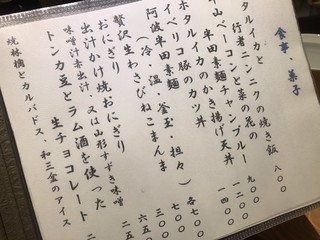 食事・菓子
タルイカとニンニクの焼き飯 八〇〇
行者ニンニクと菜の花の
ベーコンと 九〇〇
半田素麺チャンプルー 一二〇〇
タルイカのかき揚げ天丼 一四〇〇
ホタルコ豚のカツ丼
イベリコ
阿波半田素麺 釜玉・担々
(冷・温) 各七〇〇
贅沢生わさびねこまんま 六五〇
おにぎり
出汁かけ焼おにぎり
味噌汁赤出汁、又は山形すずき味噌
トンカ豆とラム酒を使った
生チョコレート
焼林檎とカルバドス、和三盆のアイス